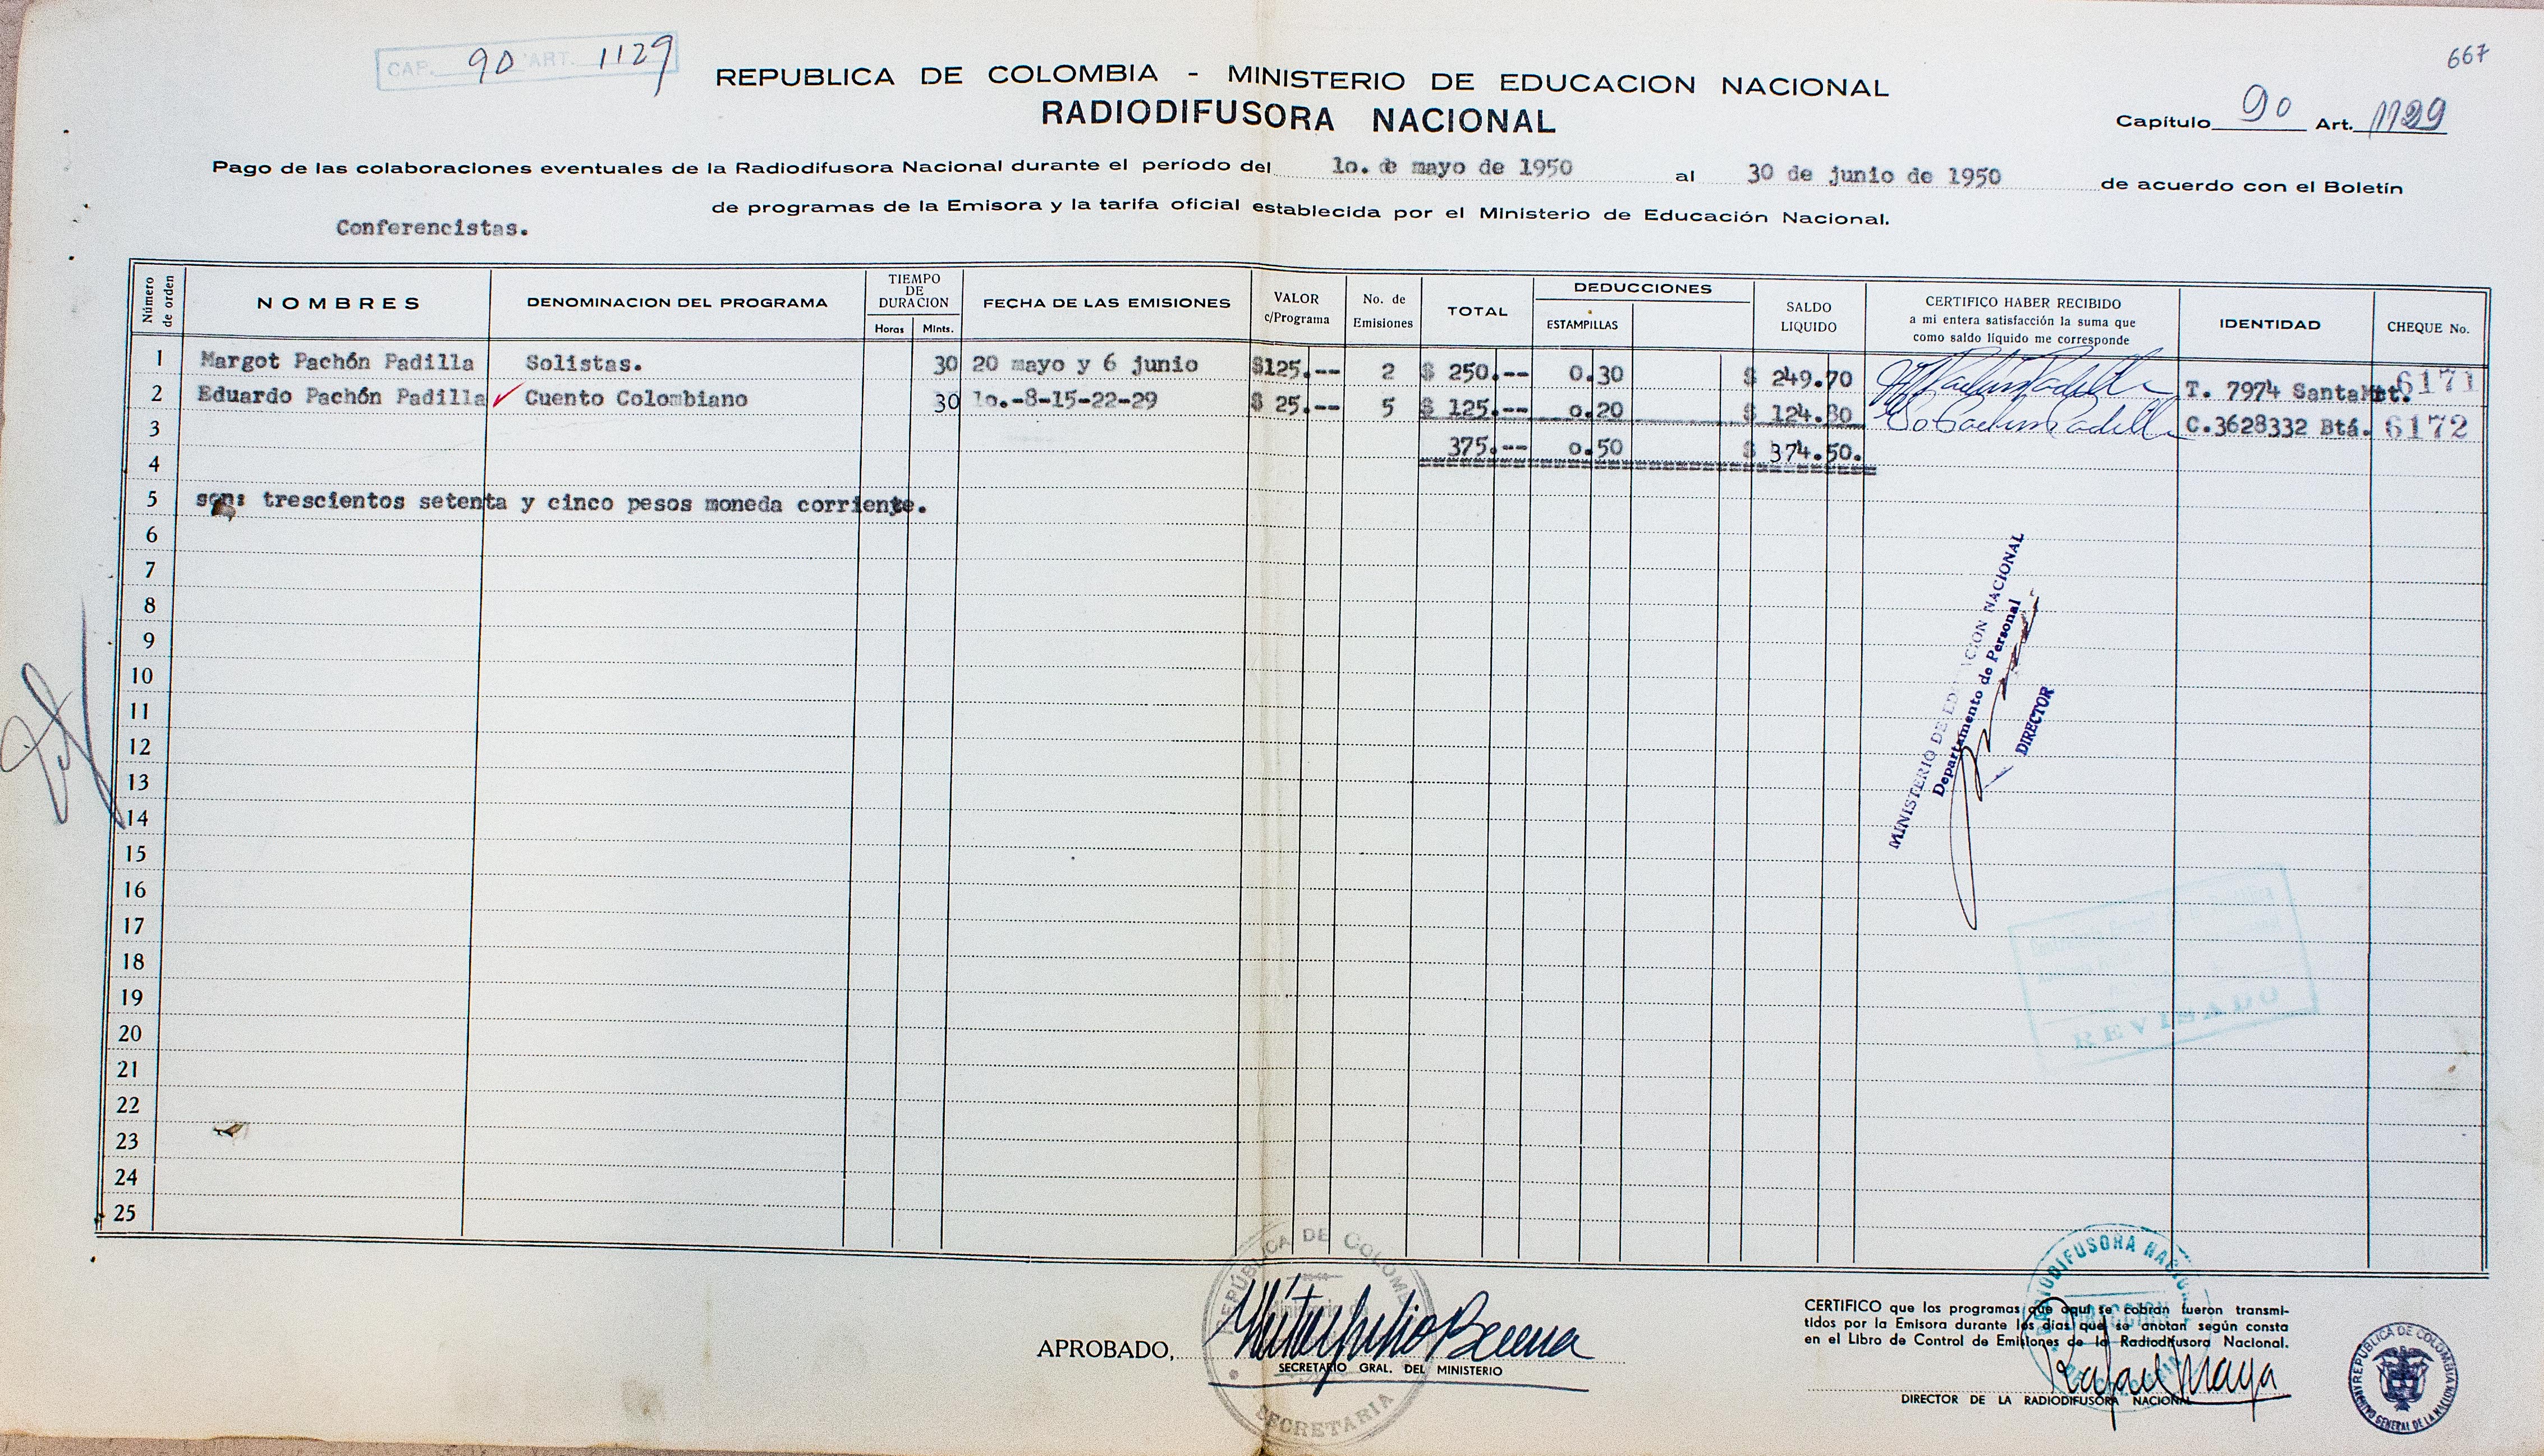 667
CAP. 90 ART. 1129
REPUBLICA DE COLOMBIA - MINISTERIO DE EDUCACION NACIONAL
RADIODIFUSORA NACIONAL
Capítulo 90 Art. 1129
Pago de las colaboraciones eventuales de la Radiodifusora Nacional durante el período del 1o. de mayo de 1950 al 30 de junio de 1950 de acuerdo con el Boletín
de programas de la Emisora y la tarifa oficial establecida por el Ministerio de Educación Nacional.
Conferencistas.
Número de orden NOMBRES DENOMINACION DEL PROGRAMA TIEMPO DE DURACION Horas Mints. FECHA DE LAS EMISIONES VALOR c/Programa No. de Emisiones TOTAL DEDUCCIONES ESTAMPILLAS SALDO LIQUIDO CERTIFICO HABER RECIBIDO a mi entera satisfacción la suma que como saldo líquido me corresponde IDENTIDAD CHEQUE No.
1 Margot Pachón Padilla Solistas. 30 20 mayo y 6 junio $125.-- 2 $ 250.-- 0.30 $ 249.70 M Pachón Padilla T. 7974 SantaMtt. 6171
2 Eduardo Pachón Padilla Cuento Colombiano 30 1o.-8-15-22-29 $ 25.-- 5 $ 125.-- 0.20 $ 124.80 Pachón Padilla C.3628332 Btá. 6172
3 375.-- 0.50 $ 374.50.
4
5 son: trescientos setenta y cinco pesos moneda corriente.
6
7
8
9
10
11
12
13
14
15
16
17
18
19
20
21
22
23
24
25
MINISTERIO DE EDUCACION NACIONAL
Departamento de Personal
DIRECTOR
REVISADO
REPÚBLICA DE COLOMBIA
Ministerio de
SECRETARIA
APROBADO,
SECRETARIO GRAL. DEL MINISTERIO
RADIODIFUSORA NACIONAL
DIRECCION
CERTIFICO que los programas que aquí se cobran fueron transmi-
tidos por la Emisora durante los días que se anotan según consta
en el Libro de Control de Emisiones de la Radiodifusora Nacional.
Rafael Maya
DIRECTOR DE LA RADIODIFUSORA NACIONAL
REPUBLICA DE COLOMBIA
ARCHIVO GENERAL DE LA NACION